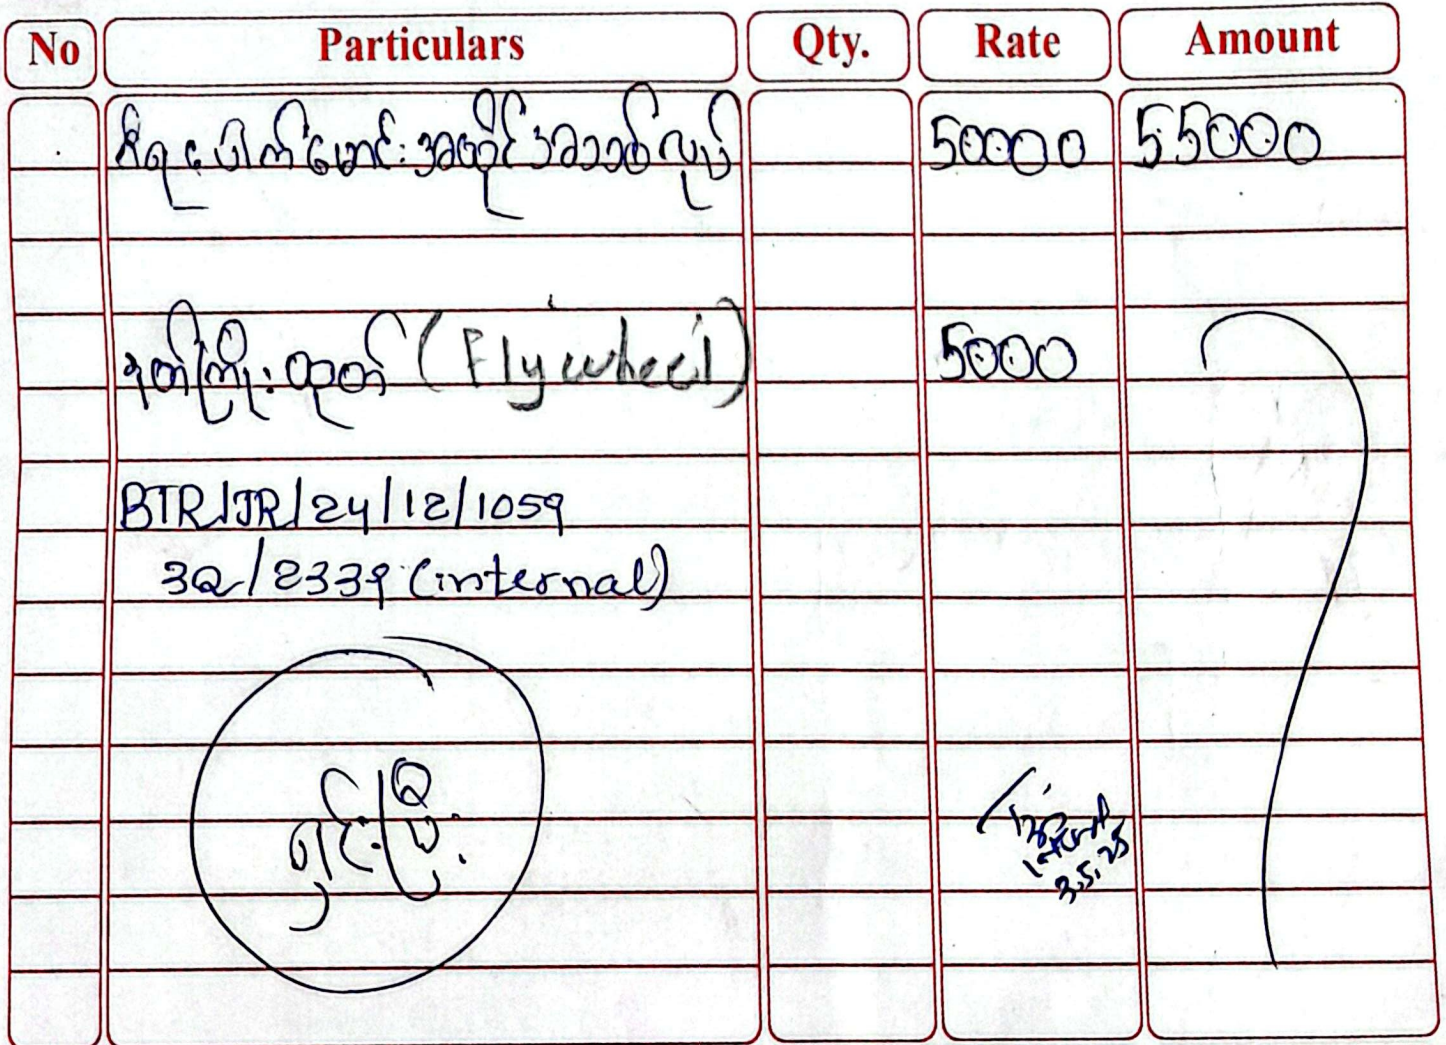 No Particulars Qty. Rate Amount
ဂီယာပေါက်မောင်းအတိုင်အသစ်လုပ် 50000 55000
ဒုတ်ကြိုးထုတ် (Flywheel) 5000
BTR/JR/24/12/1059
3Q/2339 (internal)
ရှင်းပြီး
3.5.25